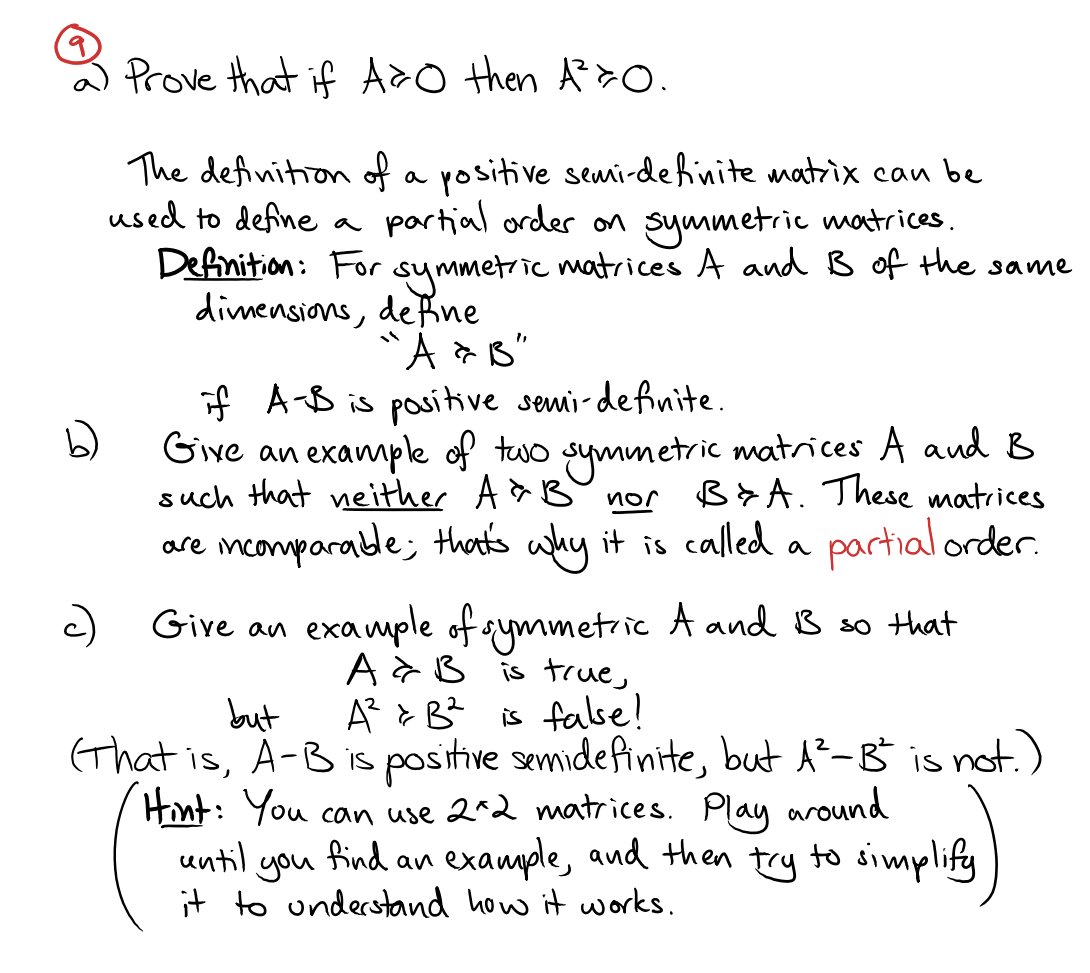 9
a) Prove that if A≽0 then A²≽0.
The definition of a positive semi-definite matrix can be
used to define a partial order on symmetric matrices.
Definition: For symmetric matrices A and B of the same
dimensions, define
"A ≽ B"
if A-B is positive semi-definite.
b) Give an example of two symmetric matrices A and B
such that neither A≽B nor B≽A. These matrices
are incomparable; that's why it is called a partial order.
c) Give an example of symmetric A and B so that
A ≽ B is true,
but A² ≽ B² is false!
(That is, A-B is positive semidefinite, but A²-B² is not.)
(Hint: You can use 2×2 matrices. Play around
until you find an example, and then try to simplify
it to understand how it works.)